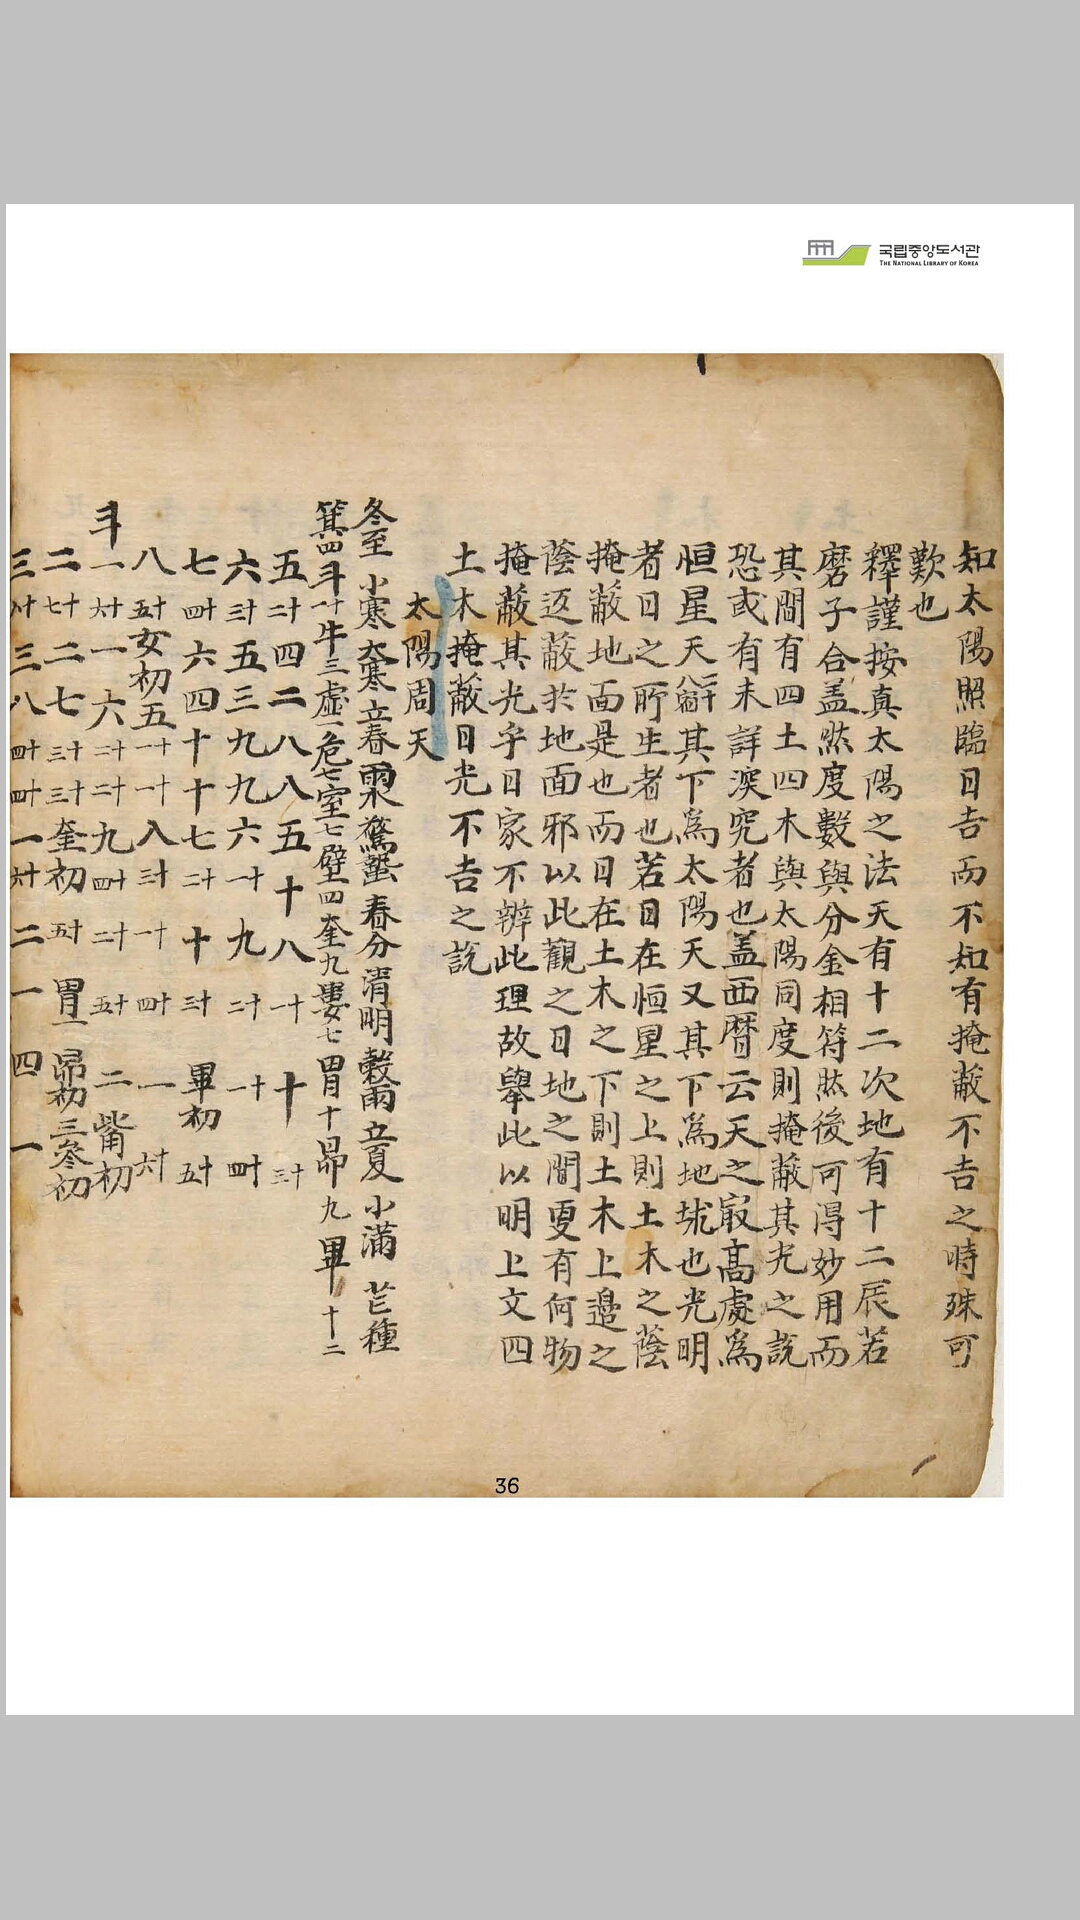 국립중앙도서관
THE NATIONAL LIBRARY OF KOREA
知太陽照臨日吉而不知有掩蔽不吉之時殊可
歎也
釋謹按真太陽之法天有十二次地有十二辰若
磨子合盖然度數與分金相符然後可得妙用而
其間有四土四木與太陽同度則掩蔽其光之說
恐或有未詳深究者也盖西曆云天之㝡高處爲
恒星天二十八宿其下爲太陽天又其下爲地球也光明
者日之所生者也若日在恒星之上則土木之蔭
掩蔽地面是也而日在土木之下則土木上邉之
蔭返蔽於地面邪以此觀之日地之間更有何物
掩蔽其光乎日家不辨此理故舉此以明上文四
土木掩蔽日光不吉之說
太陽周天
冬至 小寒 大寒 立春 雨水 驚蟄 春分 清明 穀雨 立夏 小滿 芒種
箕四斗二十牛三虛一危七室七壁四奎九婁七胃十昴九畢十二
五 二十 四 二 八 八 五 十 八 一十 十 三十
六 三十 五 三 九 九 六 一十 九 二十 一十 四十
七 四十 六 四 十 十 七 二十 十 三十 畢初 五十
八 五十 女初 五 一十 一十 八 三十 一十 四十 一 六十
斗一 六十 一 六 二十 二十 九 四十 二十 五十 二 觜初
二 七十 二 七 三十 三十 奎初 五十 胃一 昴初 三 參初
三 八十 三 八 四十 四十 一 六十 二 一 四 一
36